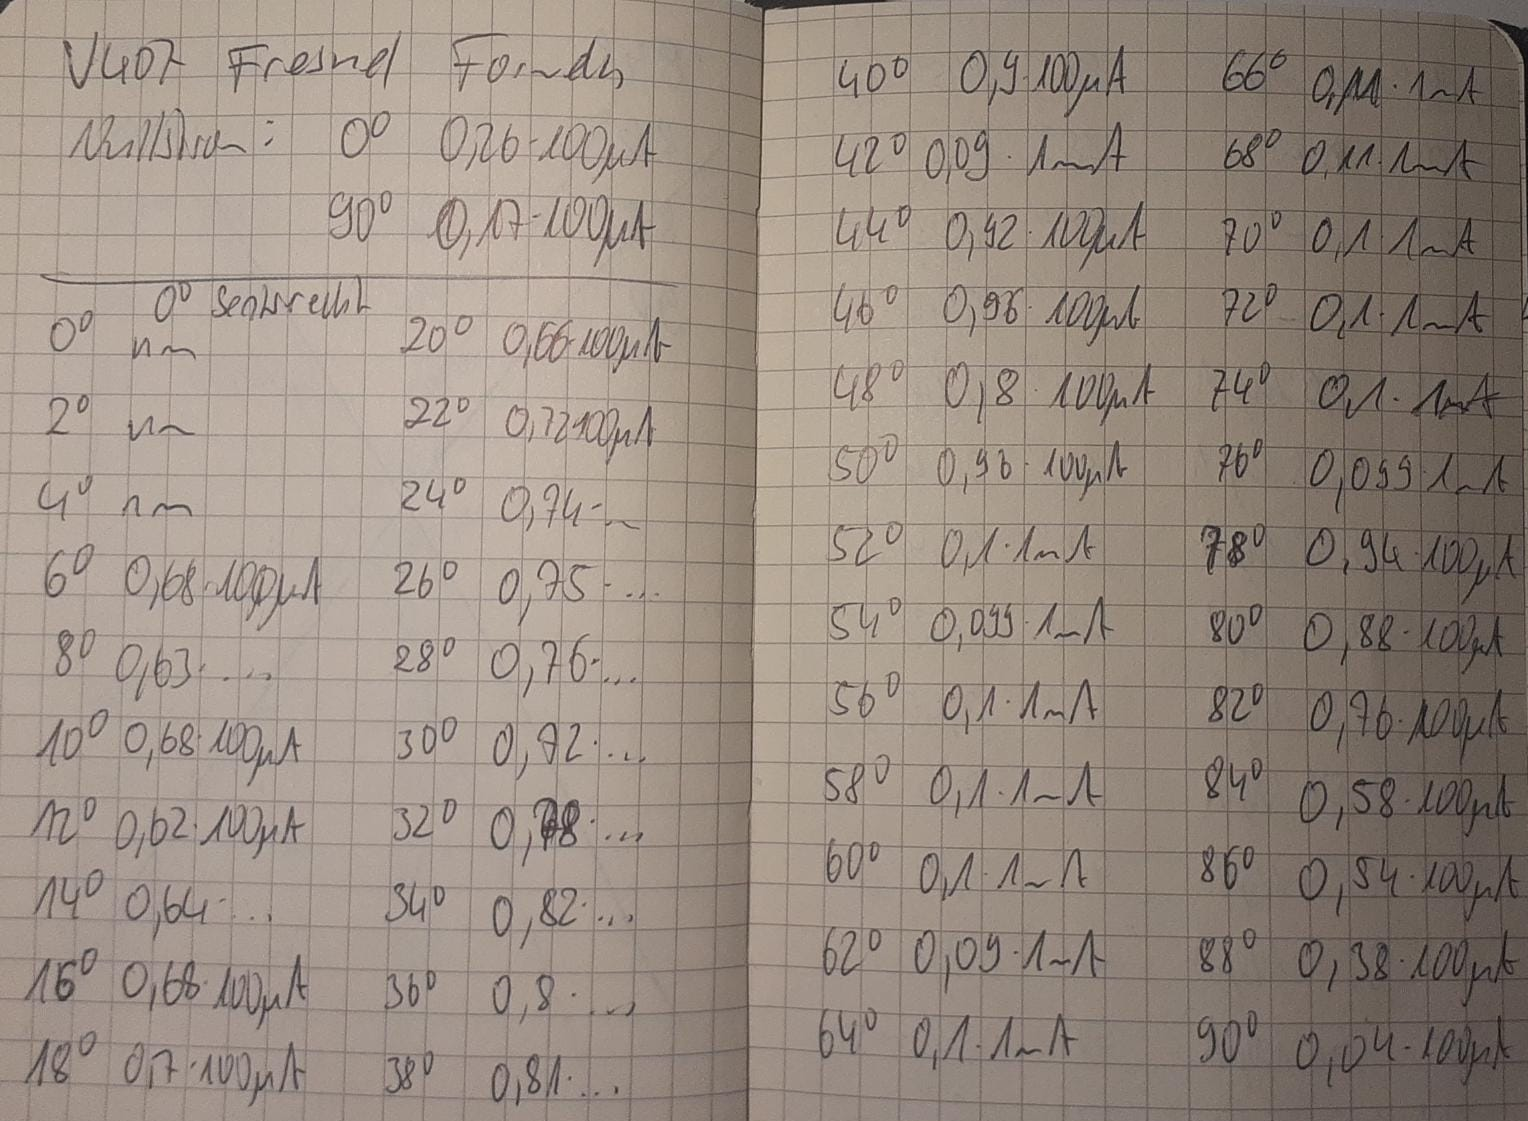 V407 Fresnel Formeln
Nullstrom: 0° 0,26·100µA
90° 0,17·100µA
0° senkrecht
0° nm
2° nm
4° nm
6° 0,68·100µA
8° 0,63·...
10° 0,68·100µA
12° 0,62·100µA
14° 0,64·...
16° 0,68·100µA
18° 0,7·100µA
20° 0,66·100µA
22° 0,72·100µA
24° 0,74·...
26° 0,75·...
28° 0,76·...
30° 0,72·...
32° 0,78·...
34° 0,82·...
36° 0,8·...
38° 0,81·...
40° 0,9·100µA
42° 0,09·1mA
44° 0,92·100µA
46° 0,96·100µA
48° 0,8·100µA
50° 0,96·100µA
52° 0,1·1mA
54° 0,099·1mA
56° 0,1·1mA
58° 0,1·1mA
60° 0,1·1mA
62° 0,09·1mA
64° 0,1·1mA
66° 0,11·1mA
68° 0,11·1mA
70° 0,1·1mA
72° 0,1·1mA
74° 0,1·1mA
76° 0,099·1mA
78° 0,94·100µA
80° 0,88·100µA
82° 0,76·100µA
84° 0,58·100µA
86° 0,54·100µA
88° 0,38·100µA
90° 0,04·100µA